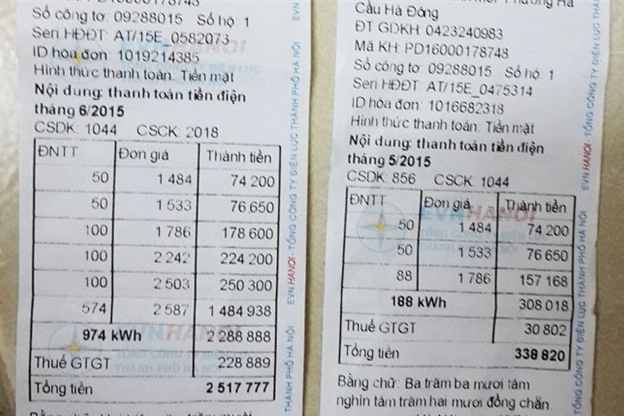 Số công tơ: 09288015 Số hộ: 1
Seri HĐĐT: AT/15E_0582073
ID hóa đơn: 1019214385
Hình thức thanh toán: Tiền mặt
Nội dung: thanh toán tiền điện
tháng 6/2015
CSDK: 1044 CSCK: 2018
ĐNTT Đơn giá Thành tiền
50 1 484 74 200
50 1 533 76.650
100 1 786 178 600
100 2 242 224 200
100 2 503 250 300
574 2 587 1 484 938
974 kWh 2 288 888
Thuế GTGT 228 889
Tổng tiền 2 517 777
EVN HANOI - TỔNG CÔNG TY ĐIỆN LỰC THÀNH PHỐ HÀ NỘI
Cầu Hà Đông
ĐT GDKH: 0423240983
Mã KH: PD16000178748
Số công tơ: 09288015 Số hộ: 1
Seri HĐĐT: AT/15E_0475314
ID hóa đơn: 1016682318
Hình thức thanh toán: Tiền mặt
Nội dung: thanh toán tiền điện
tháng 5/2015
CSDK: 856 CSCK: 1044
ĐNTT Đơn giá Thành tiền
50 1 484 74 200
50 1 533 76 650
88 1 786 157 168
188 kWh 308 018
Thuế GTGT 30 802
Tổng tiền 338 820
Bằng chữ: Ba trăm ba mươi tám
nghìn tám trăm hai mươi đồng chẵn
EVN HANOI - TỔNG CÔNG TY ĐIỆN LỰC THÀNH PHỐ HÀ NỘI